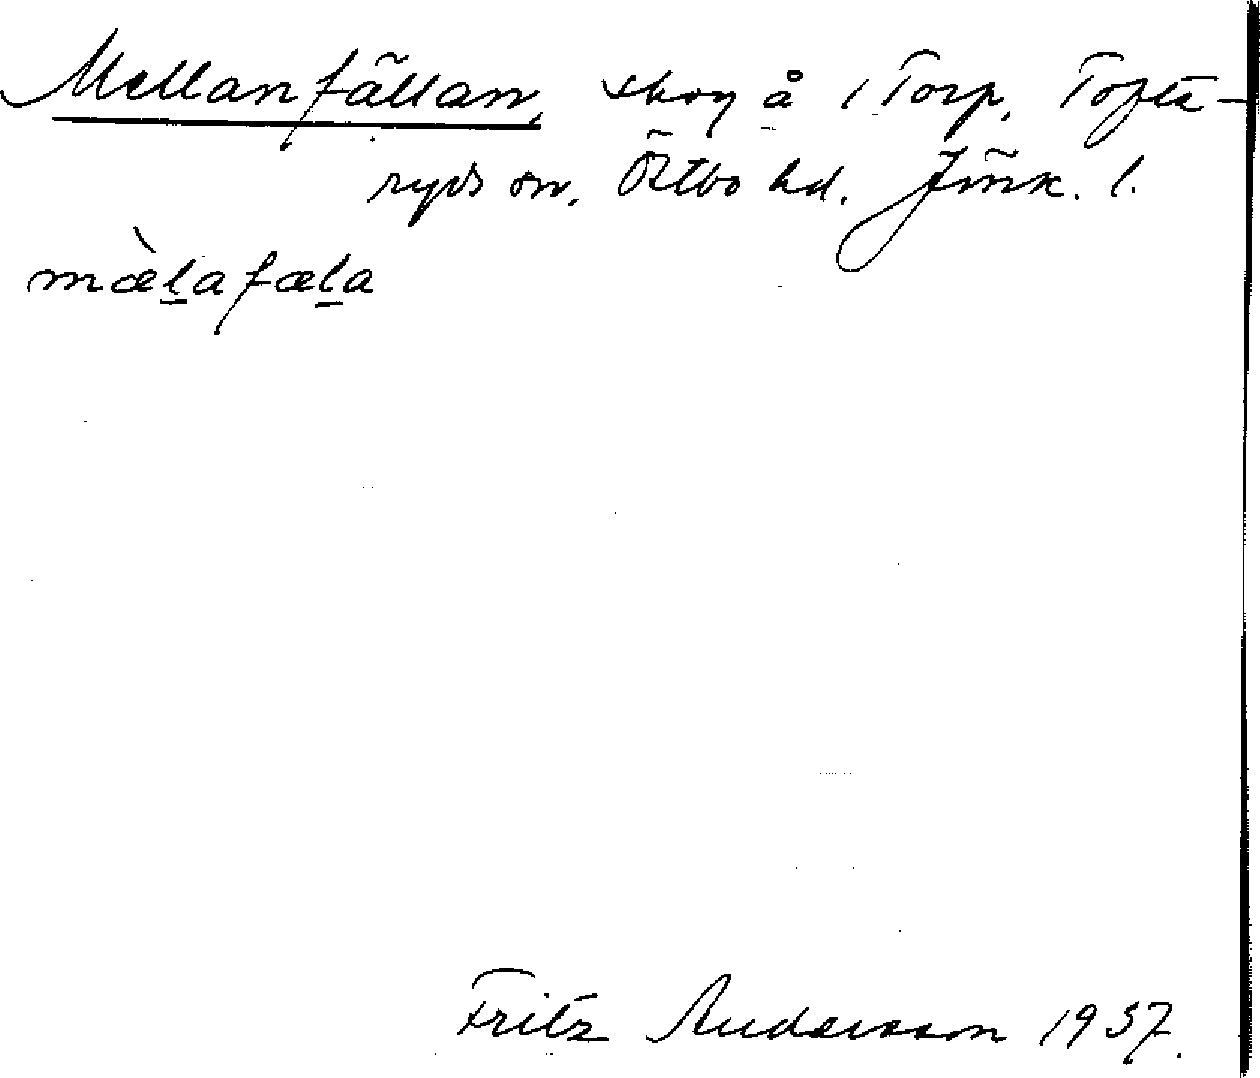 Mellanfällan, skog å 1 Torp, Tofta-
ryds sn, Östbo hd. Jönk. l.
mæ̀l̲afæl̲a
Fritz Andersson 1937.